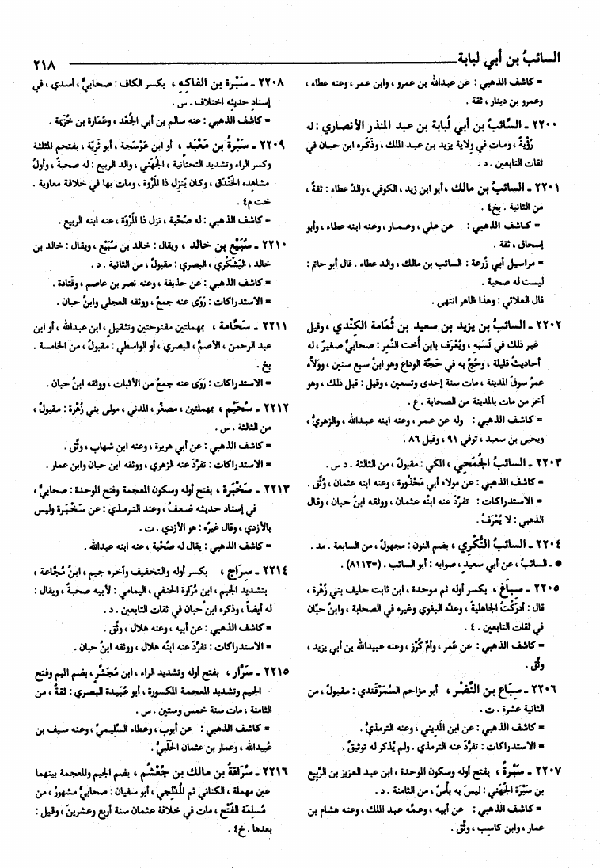 السائبُ بن أبي لبابة
٢١٨
= كاشف الذهبي : عن عبدالله بن عمرو، وابن عمر، وعنه عطاء،
وعمرو بن دينار، ثقة .
٢٢٠٠ ـ السَّائبُ بن أبي لُبابة بن عبد المنذر الأنصاري : له
رُؤْيةٌ، ومات في وِلاية يزيد بن عبد الملك، وذكره ابن حبان في
ثقات التابعين . د .
٢٢٠١ ـ السائب بن مالك، أبو ابن زيد، الكوفي، والد عطاء : ثقةٌ،
من الثانية . بخ ٤ .
= كاشف الذهبي : عن علي، وعمار، وعنه ابنه عطاء، وأبو
إسحاق، ثقة .
= مراسيل أبي زُرعة : السائب بن مالك، والد عطاء . قال أبو حاتم :
ليست له صحبة .
قال العلائي : وهذا ظاهر انتهى .
٢٢٠٢ ـ السائب بن يزيد بن سعيد بن ثُمامة الكِنْدي، وقيل
غير ذلك في نَسَبِه، ويُعْرَف بابن أخت النَّمِر : صحابيٌّ صغير، له
أحاديثُ قليلة، وحُجَّ به في حَجَّة الوداع وهو ابنُ سبع سنين، وولَّاه
عمرُ سوقَ المدينة، مات سنة إحدى وتسعين، وقيل : قبل ذلك، وهو
آخر من مات بالمدينة من الصحابة . ع .
= كاشف الذهبي : وله عن عمر، وعنه ابنه عبدالله، والزهري،
ويحيى بن سعيد، توفي ٩١، وقيل ٨٦ .
٢٢٠٣ ـ السائب الجُمَحي، المكي : مقبولٌ، من الثالثة . د س .
= كاشف الذهبي : عن مولاه أبي مَحْذُورة، وعنه ابنه عثمان، وُثِّق .
= الاستدراكات : تفرَّدَ عنه ابنُه عثمان، ووثقه ابنُ حبان، وقال
الذهبي : لا يُعْرَفُ .
٢٢٠٤ ـ السائب النُّكْري، بضم النون : مجهولٌ، من السابعة . مد .
• ـ السائب، عن أبي سعيد، صوابه : أبو السائب . (=٨١١٣) .
٢٢٠٥ ـ سِبَاع، بكسر أوله ثم موحدة، ابن ثابت حليف بني زُهْرة،
قال : أدركتُ الجاهلية، وعدَّه البغوي وغيره في الصحابة، وابنُ حبَّان
في ثقات التابعين . ٤ .
= كاشف الذهبي : عن عُمر، وأم كُرْز، وعنه عبيدالله بن أبي يزيد،
وثق .
٢٢٠٦ ـ سِبَاع بن النَّضْر، أبو مزاحم السَّمَرْقندي : مقبول، من
الثانية عشرة . ت .
= كاشف الذهبي : عن ابن المديني، وعنه الترمذي .
= الاستدراكات : تفرَّدَ عنه الترمذي . ولم يُذكر له توثيقٌ .
٢٢٠٧ ـ سَبْرةُ، بفتح أوله وسكون الموحدة، ابن عبد العزيز بن الرَّبيع
بن سَبْرة الجُهني : ليس به بأسٌ، من الثامنة . د .
= كاشف الذهبي : عن أبيه، وعمه عبد الملك، وعنه هشام بن
عمار، وابن كاسب، وثق .
٢٢٠٨ ـ سَبْرة بن الفاكِه، بكسر الكاف : صحابيٌّ، أسدي، في
إسنادِ حديثِه اختلاف . س .
= كاشف الذهبي : عنه سالم بن أبي الجعد، وعمارة بن خزيمة .
٢٢٠٩ ـ سَبْرةُ بن مَعْبَد، أو ابن عَوْسَجة، أبو ثُريَّة، بفتح المثلثة
وكسر الراء وتشديد التحتانية، الجُهني، والد الربيع : له صحبةٌ، وأولُ
مشاهده الخَنْدَق، وكان يَنزِل ذا المَرْوة، ومات بها في خلافة معاوية .
خت م ٤ .
= كاشف الذهبي : له صُحْبة، نزل ذا المَرْوة، وعنه ابنه الربيع .
٢٢١٠ ـ سُبَيْع بن خالد، ويقال : خالد بن سُبَيْع، ويقال : خالد بن
خالد، اليَشْكري، البصري : مقبولٌ، من الثانية . د .
= كاشف الذهبي : عن حذيفة، وعنه نصر بن عاصم، وقتادة .
= الاستدراكات : رَوَى عنه جمعٌ، ووثقه العجلي وابنُ حبان .
٢٢١١ ـ سَحَّامة، بمهملتين مفتوحتين وتثقيل، ابن عبدالله، أو ابن
عبد الرحمن، الأصمُّ، البصري، أو الواسطي : مقبول، من الخامسة .
بخ .
= الاستدراكات : رَوَى عنه جمعٌ من الأثبات، ووثقه ابنُ حبان .
٢٢١٢ ـ سُحَيْم، بمهملتين، مصغَّر، المدني، مولى بني زُهْرة : مقبولٌ،
من الثالثة . س .
= كاشف الذهبي : عن أبي هريرة، وعنه ابن شهاب، وثق .
= الاستدراكات : تفرَّدَ عنه الزهري، ووثقه ابن حبان وابن عمار .
٢٢١٣ ـ سَخْبَرة، بفتح أوله وسكون المعجمة وفتح الموحدة : صحابيٌّ،
في إسناد حديثه ضعفٌ، وعند الترمذي : عن سَخْبَرة وليس
بالأزدي، وقال غيرُه : هو الأزدي . ت .
= كاشف الذهبي : يقال له صُحْبة، عنه ابنه عبدالله .
٢٢١٤ ـ سِرَاج، بكسر أوله والتخفيف وآخره جيم، ابنُ مُجَّاعة،
بتشديد الجيم، ابن مُرَارة الحنفي، اليمامي : لأبيه صحبةٌ، ويقال :
له أيضاً، وذكره ابن حبان في ثقات التابعين . د .
= كاشف الذهبي : عن أبيه، وعنه هلال، وثق .
= الاستدراكات : تفرَّدَ عنه هلال، ووثقه ابن حبان .
٢٢١٥ ـ سَرَّار، بفتح أوله وتشديد الراء، ابن مُجَشِّر، بضم الميم وفتح
الجيم وتشديد المعجمة المكسورة، أبو عُبيدة البصري : ثقةٌ، من
الثامنة، مات سنة خمس وستين . س .
= كاشف الذهبي : عن أيوب، وعطاء السَّليمي، وعنه سيف بن
عُبيدالله، وعمار بن عثمان الحلبي .
٢٢١٦ ـ سُرَاقةُ بن مالك بن جُعْشُم، بضم الجيم والمعجمة بينهما
عين مهملة، الكناني ثم المُدْلِجي، أبو سفيان : صحابيٌّ مشهورٌ، من
مُسلِمَة الفَتْح، مات في خلافة عثمان سنة أربع وعشرين، وقيل :
بعدها . خ ٤ .